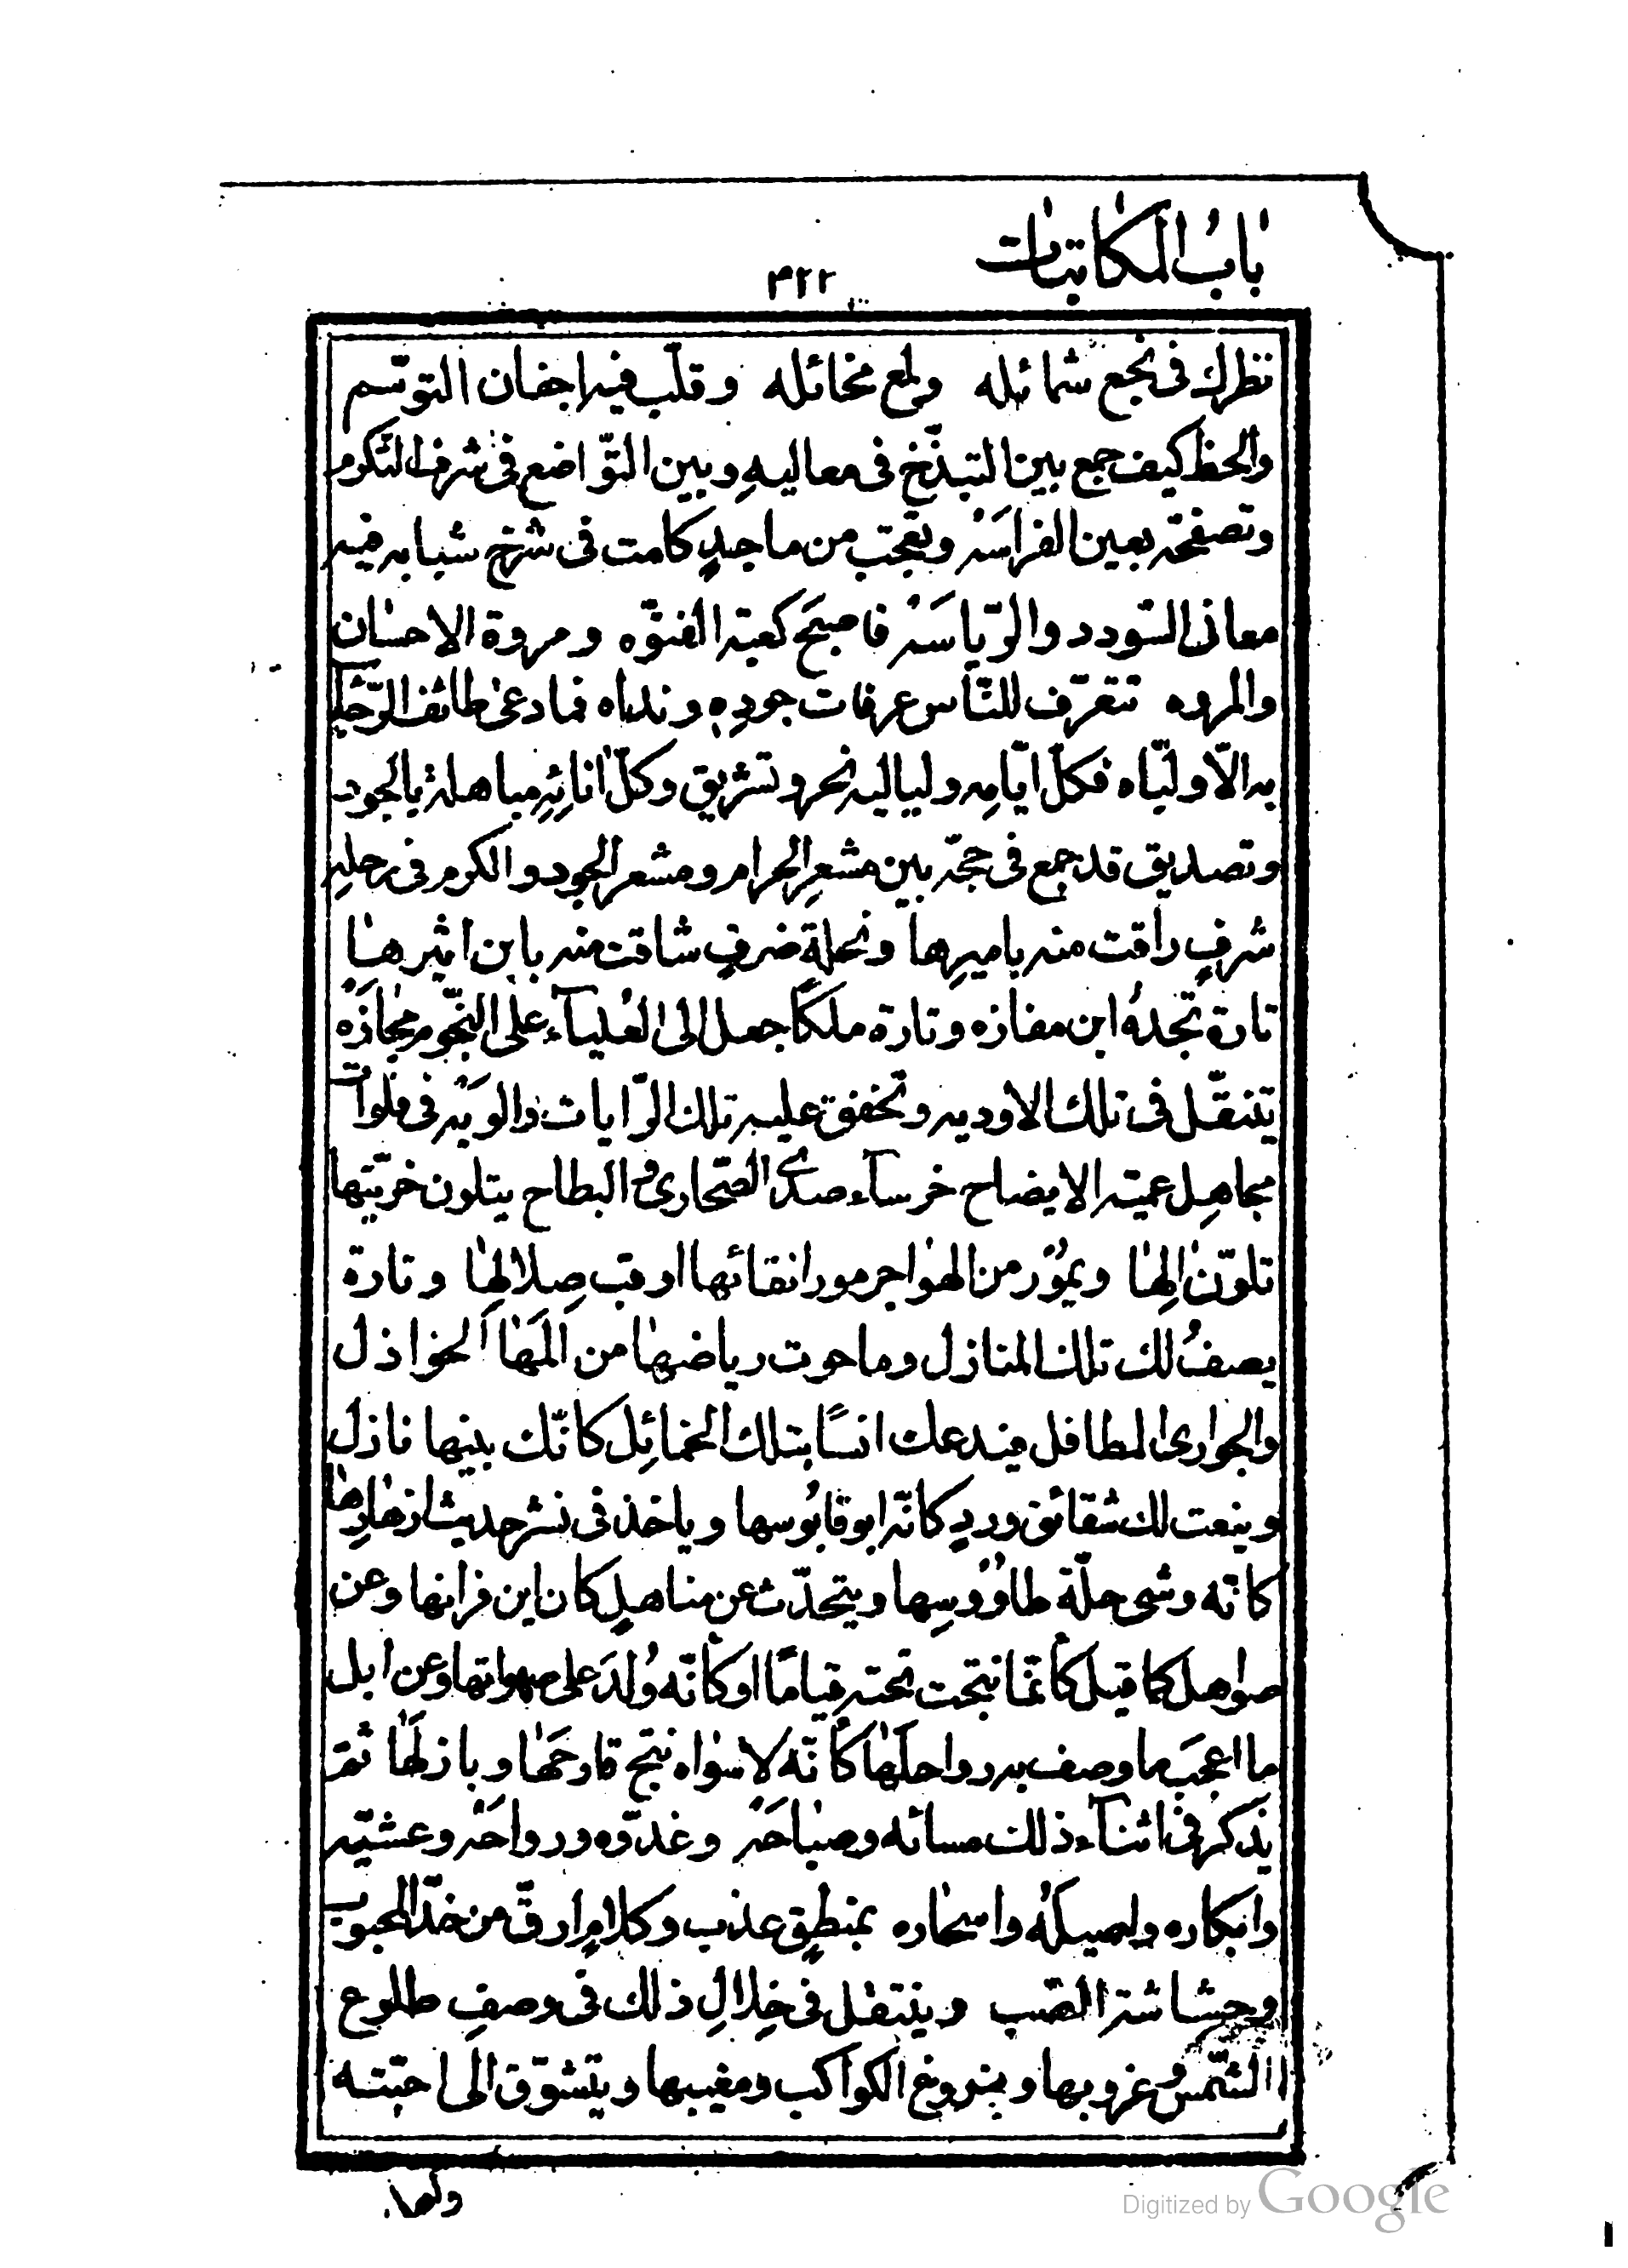 بابُ المكاتبات
٣٢٢
نظرك فى نجع شمائله ولمع مخائله وقلّب فيه اجفان التوسّم
والحظ كيف جمع بين التبذّخ فى معاليهِ وبين التّواضع فى شرف التّكرم
وتصفحّه بعين الفراسَة وتعجّب من ماجدٍ كامت فى شرخ شبابه فيه
معانى السّودد والرّياسَة فاصبحَ كعبة الفتوّه ومروة الاحسان
والمروه تتعرّف للنّاس عرفات جودِهِ ونداه فمادعى طائف الرّجآ
به الاّ ولبّاه فكلّ ايّامه ولياليه نحر وتشريق وكلّ انائِهِ مباهلة بالجود
وتصديق قد جمع فى حجّه بين مشعرِ الحرام ومشعر الجود والكرم فى رحلةِ
شرفٍ راقت منه باميرِها ونحلة ضرفٍ شاقت منه بابن اثيرها
تارة تجدهُ ابن مفازه وتارة ملكًا جعل الى العُليآء على النجّوم مجازَه
يتنقّل فى تلك الاوديه وتخفق عليه تلك الرّايات والويَه فى فلوات
مجاهِل عميّة الايضاح خرسآء صدى الصّحارى والبطاح يتلون خرّيتها
تلوّن الِها ويمُوُر من الهواجر مور انقائها اوقب صِلالِها وتارة
يصفُ لك تلك المنازل وما حوت رياضها من المَها الخواذل
والجوارى المطافل فيدعك انسًا بتلك الخمائِل كانّك بينها نازل
وينعت لك شقائق وردٍ كانّه ابو قابُوسها وياخذ فى نشر حديث ازهارِها
كانّه وشى حلّة طاوُوسِها ويتحدّث عن مناهلٍ كان اين فراتها وعن
صواهل كما قيل كأنّما نتجت تحته قيامًا اوكأنّه وُلدَ على صهواتها وعن ابل
ما اعجَب ما وصف به رواحلَها كأنّه لاسواه نتج قارحَها وبازلَها ثمّ
يَذكر فى اثنآء ذلك مسائه وصباحَه وغدّوه ورواحَه وعشيّه
وابكاره واصيلَه واسحاره بمنطقٍ عذب وكلامٍ ارقّ من خدّ المحبوب
وحشاشة الصّب وينتقل فى خِلالِ ذلك فى وصفِ طلوع
الشّمس وغروبها وبزوغ الكواكب ومغيبها ويتشوّق الى احبّته
Digitized by Google